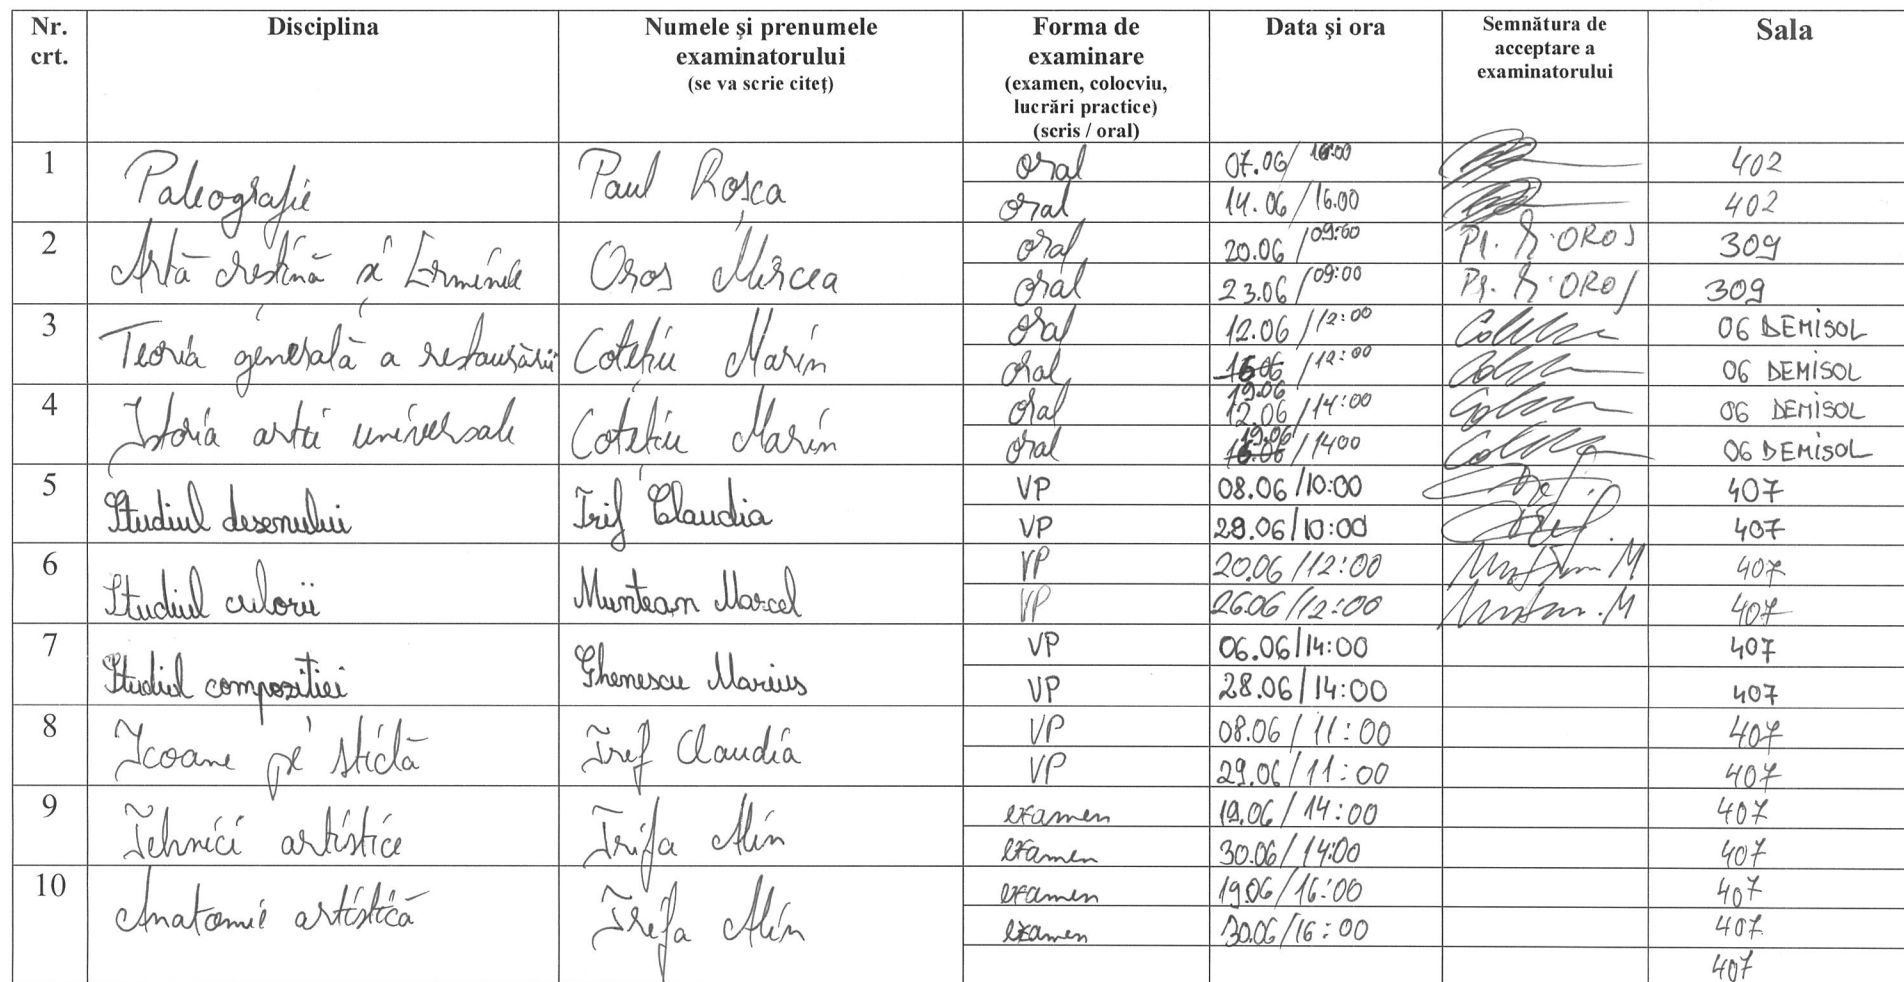 Nr. crt. Disciplina Numele și prenumele examinatorului (se va scrie citeț) Forma de examinare (examen, colocviu, lucrări practice) (scris / oral) Data și ora Semnătura de acceptare a examinatorului Sala
1 Paleografie Paul Roșca oral 07.06/ 16:00 402
oral 14.06/16.00 402
2 Artă creștină și Erminie Oros Mircea oral 20.06/09:00 Pr. M. OROS 309
oral 23.06/09:00 Pr. M. OROS 309
3 Teoria generală a restaurării Cotețiu Marin oral 12.06/12:00 06 DEMISOL
oral 19.06 /12:00 06 DEMISOL
4 Istoria artei universale Cotețiu Marin oral 12.06/14:00 06 DEMISOL
oral 19.06 /1400 06 DEMISOL
5 Studiul desenului Trif Claudia VP 08.06/10:00 407
VP 29.06/10:00 407
6 Studiul culorii Muntean Marcel VP 20.06/12:00 Muntean M 407
VP 26.06/12:00 Muntean.M 407
7 Studiul compozitiei Ghenescu Marius VP 06.06/14:00 407
VP 28.06/14:00 407
8 Icoane pe sticlă Trif Claudia VP 08.06/11:00 407
VP 29.06/11:00 407
9 Tehnici artistice Trifa Alin examen 19.06/14:00 407
examen 30.06/14:00 407
10 Anatomie artistică Trifa Alin examen 19.06/16:00 407
examen 30.06/16:00 407
407